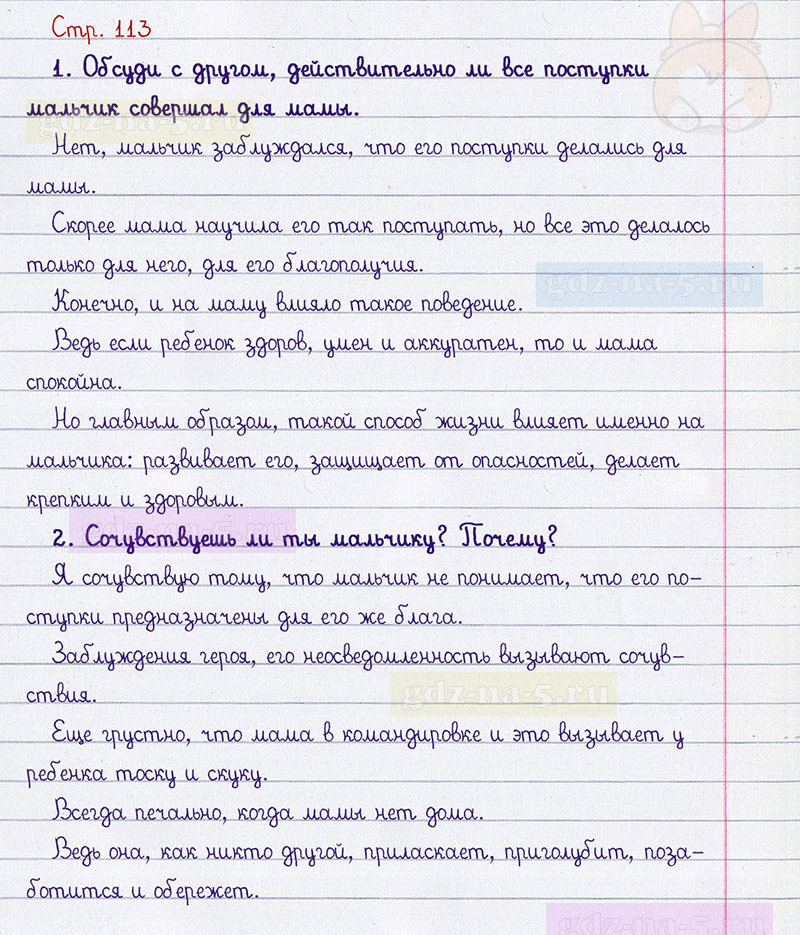 Стр. 113
1. Обсуди с другом, действительно ли все поступки
мальчик совершал для мамы.
gdz-na-5.ru
Нет, мальчик заблуждался, что его поступки делались для
мамы.
Скорее мама научила его так поступать, но все это делалось
только для него, для его благополучия.
gdz-na-5.ru
Конечно, и на маму влияло такое поведение.
Ведь если ребенок здоров, умен и аккуратен, то и мама
спокойна.
Но главным образом, такой способ жизни влияет именно на
мальчика: развивает его, защищает от опасностей, делает
крепким и здоровым.
gdz-na-5.ru
2. Сочувствуешь ли ты мальчику? Почему?
Я сочувствую тому, что мальчик не понимает, что его по-
ступки предназначены для его же блага.
Заблуждения героя, его неосведомленность вызывают сочув-
ствия.
gdz-na-5.ru
Еще грустно, что мама в командировке и это вызывает у
ребенка тоску и скуку.
Всегда печально, когда мамы нет дома.
Ведь она, как никто другой, приласкает, приголубит, поза-
ботится и обережет.
gdz-na-5.ru